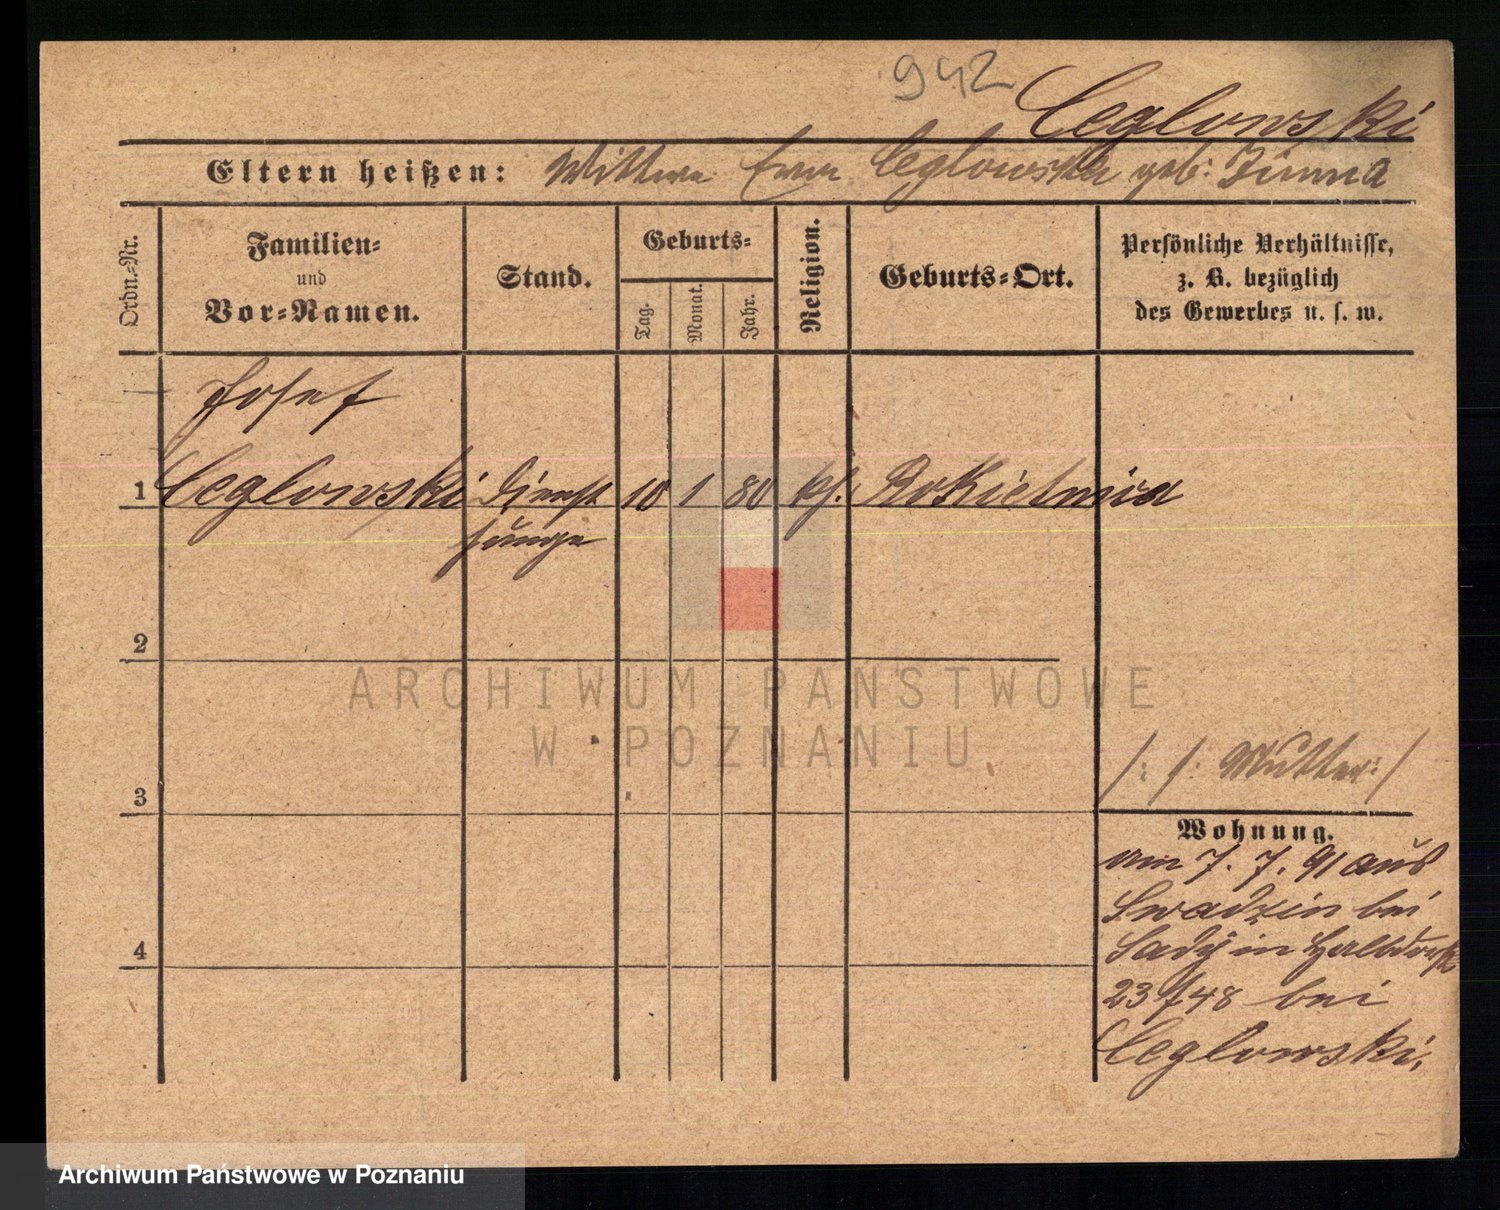 942
Ceglowski
Eltern heißen: Wittwe Ceglowska geb: Zimna
Ordn.=Nr.
Familien=
und
Vor=Namen.
Stand.
Geburts=
Tag.
Monat.
Jahr.
Religion.
Geburts=Ort.
Persönliche Verhältnisse,
z. B. bezüglich
des Gewerbes u. s. w.
Josef
1 Ceglowski Dienst 10 1 80 kf. Rokietnica
junge
2
ARCHIWUM PAŃSTWOWE
W POZNANIU
/: /: Mutter :/
3
Wohnung.
am 7. 7. 91 aus
Swadzin bei
Sady in Halbdorfst
23/48 bei
Ceglowski.
4
Archiwum Państwowe w Poznaniu